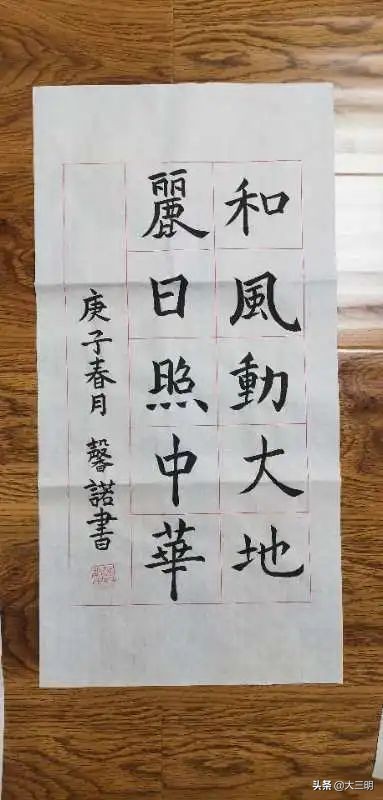 和風動大地
麗日照中華
庚子春月 馨諾書
头条 @大三明